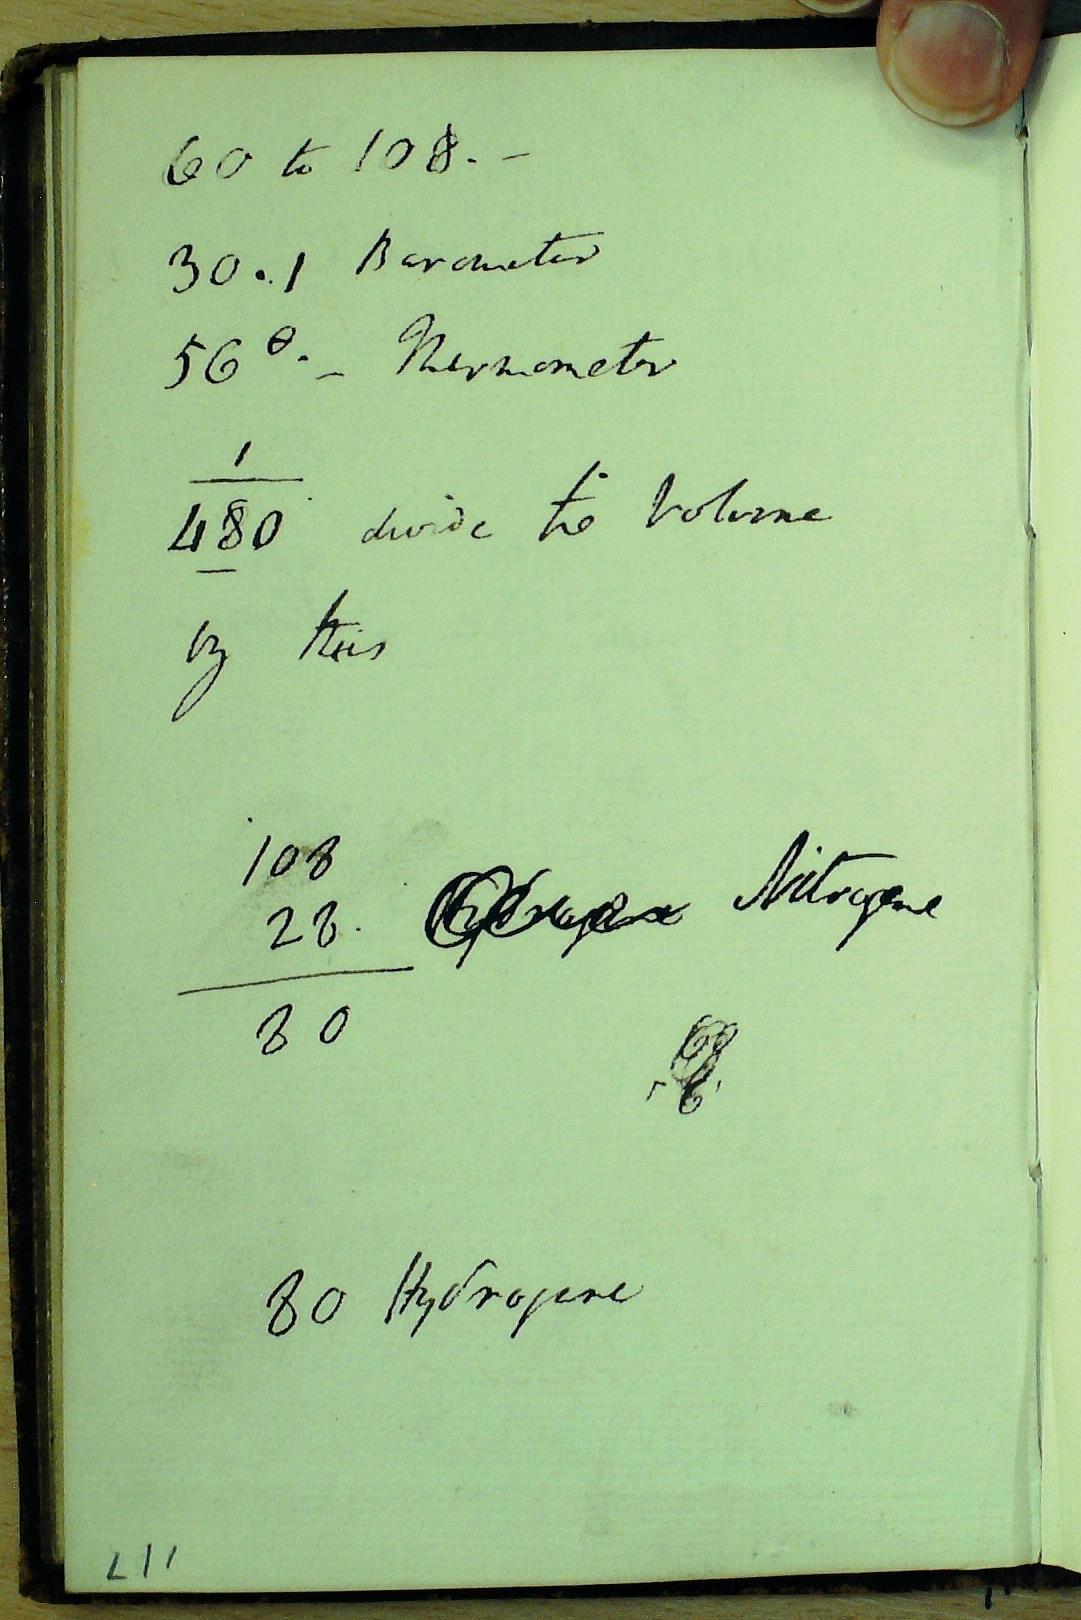 60 to 108. -
30.1 Barometer
56°. - Thermometer
1
480 divide the Volume
by this
108
28. Nitrogene
80
80 Hydrogene